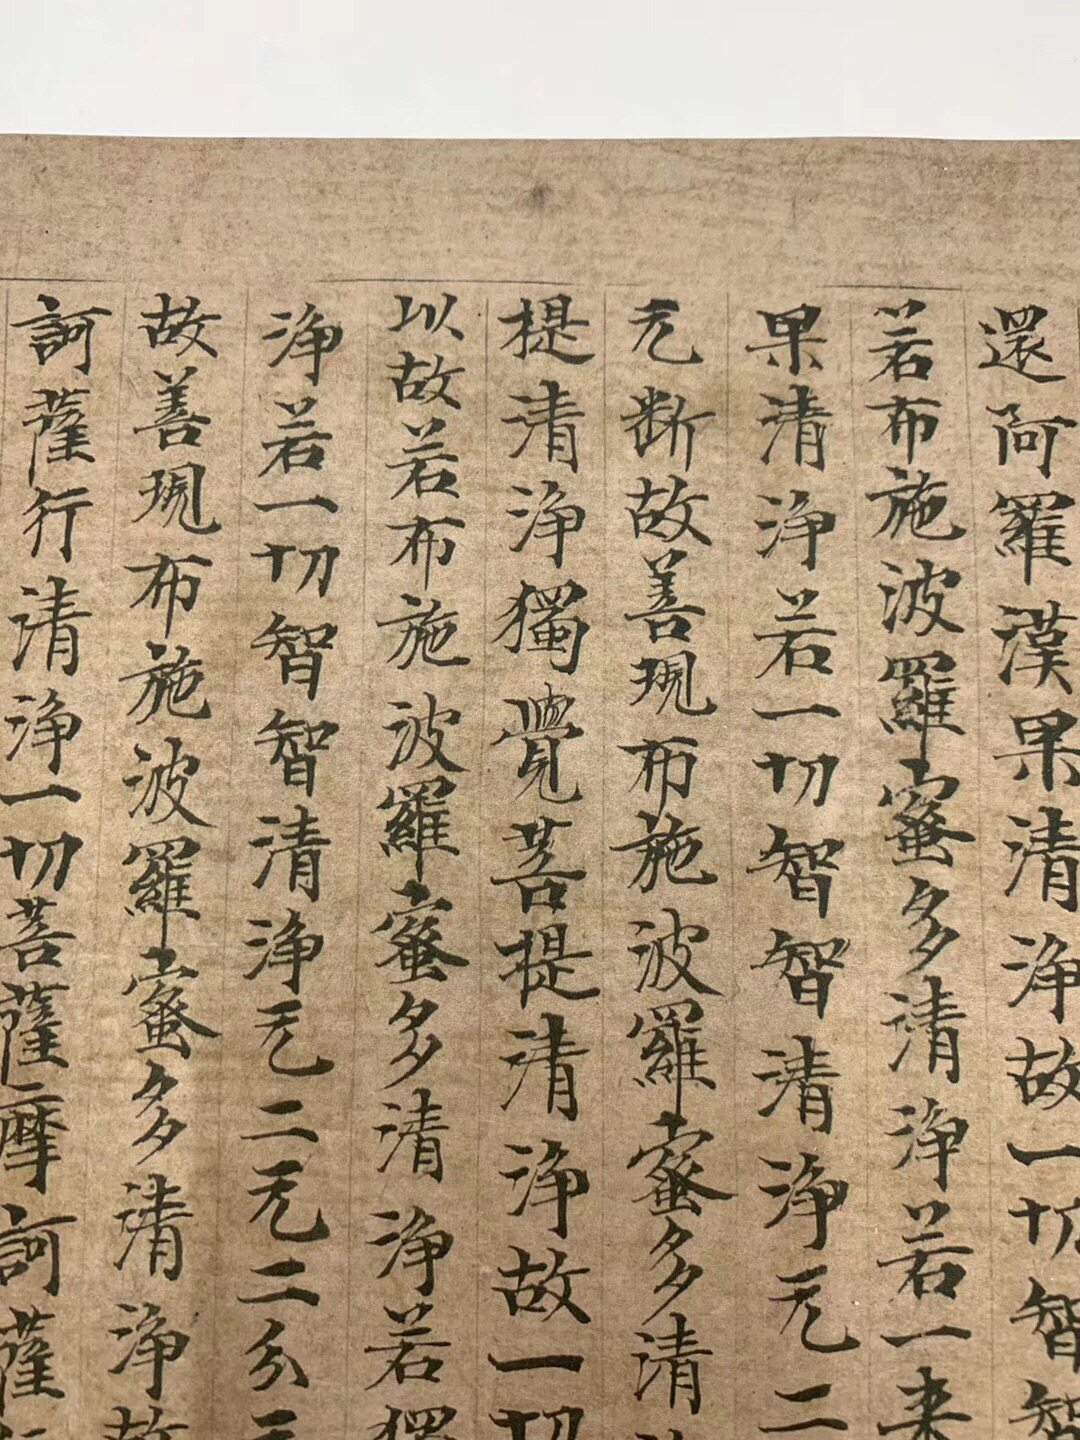 還阿羅漢果清浄故一切智智
若布施波羅蜜多清浄若一来
果清浄若一切智智清浄无二
无断故善現布施波羅蜜多清
提清浄獨覺菩提清浄故一切
以故若布施波羅蜜多清浄若獨
浄若一切智智清浄无二无二分无
故善現布施波羅蜜多清浄故
訶薩行清浄一切菩薩摩訶薩行